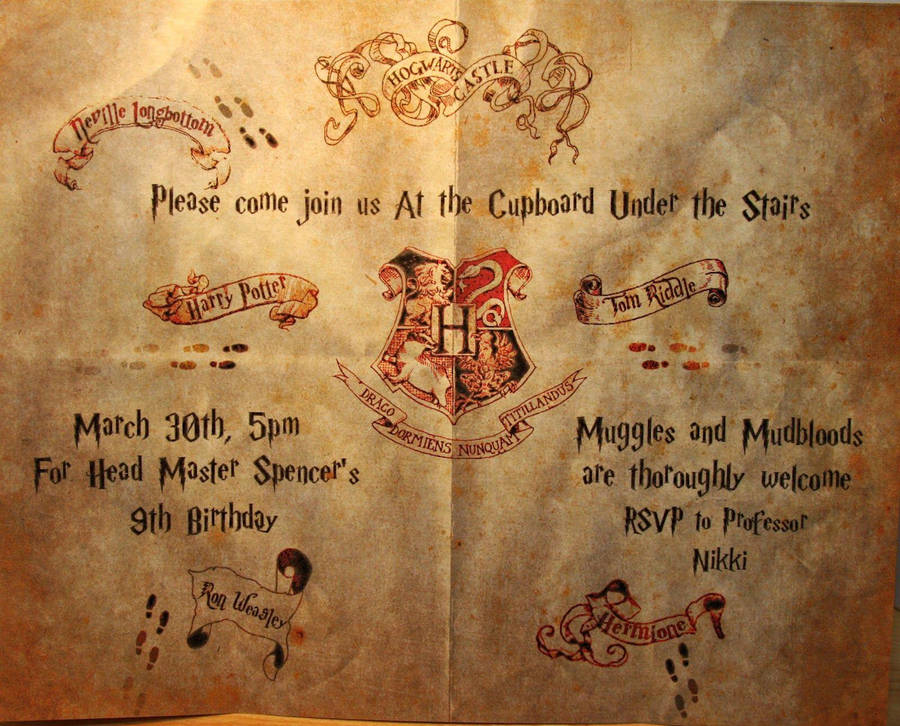 HOGWARTS CASTLE
Neville Longbottom
Please come join us At the Cupboard Under the Stairs
Harry Potter
Tom Riddle
H
DRACO DORMIENS NUNQUAM TITILLANDUS
March 30th, 5pm
For Head Master Spencer's
9th Birthday
Muggles and Mudbloods
are thoroughly welcome
RSVP to Professor
Nikki
Ron Weasley
Hermione